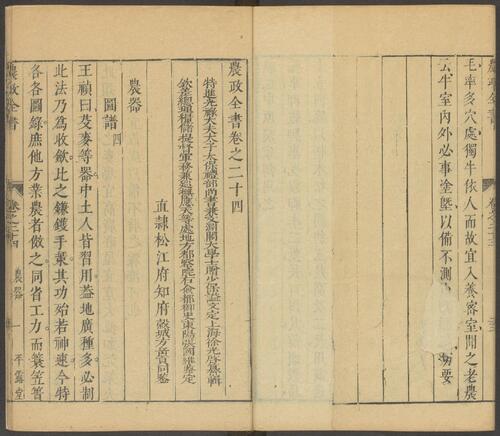 毛率多穴處獨牛依人而故宜入養密室聞之老農
云牛室內外必事塗墍以備不測
要
農政全書卷之二十四
特進光祿大夫太子太保禮部尚書兼文淵閣大學士贈少保謚文定上海徐光啓纂輯
欽差總理糧儲提督軍務兼巡撫應天等處地方都察院右僉都御史東陽張國維鑒定
直隸松江府知府穀城方岳貢同鑒
農器
圖譜四
王禎曰芟麥等器中土人皆習用蓋地廣種多必制
此法乃爲收歛比之鎌鑊手葉其功殆若神速今特
各各圖錄庶他方業農者倣之同省工力而簑笠等
農政全書
卷之二十四
農器
一
平露堂